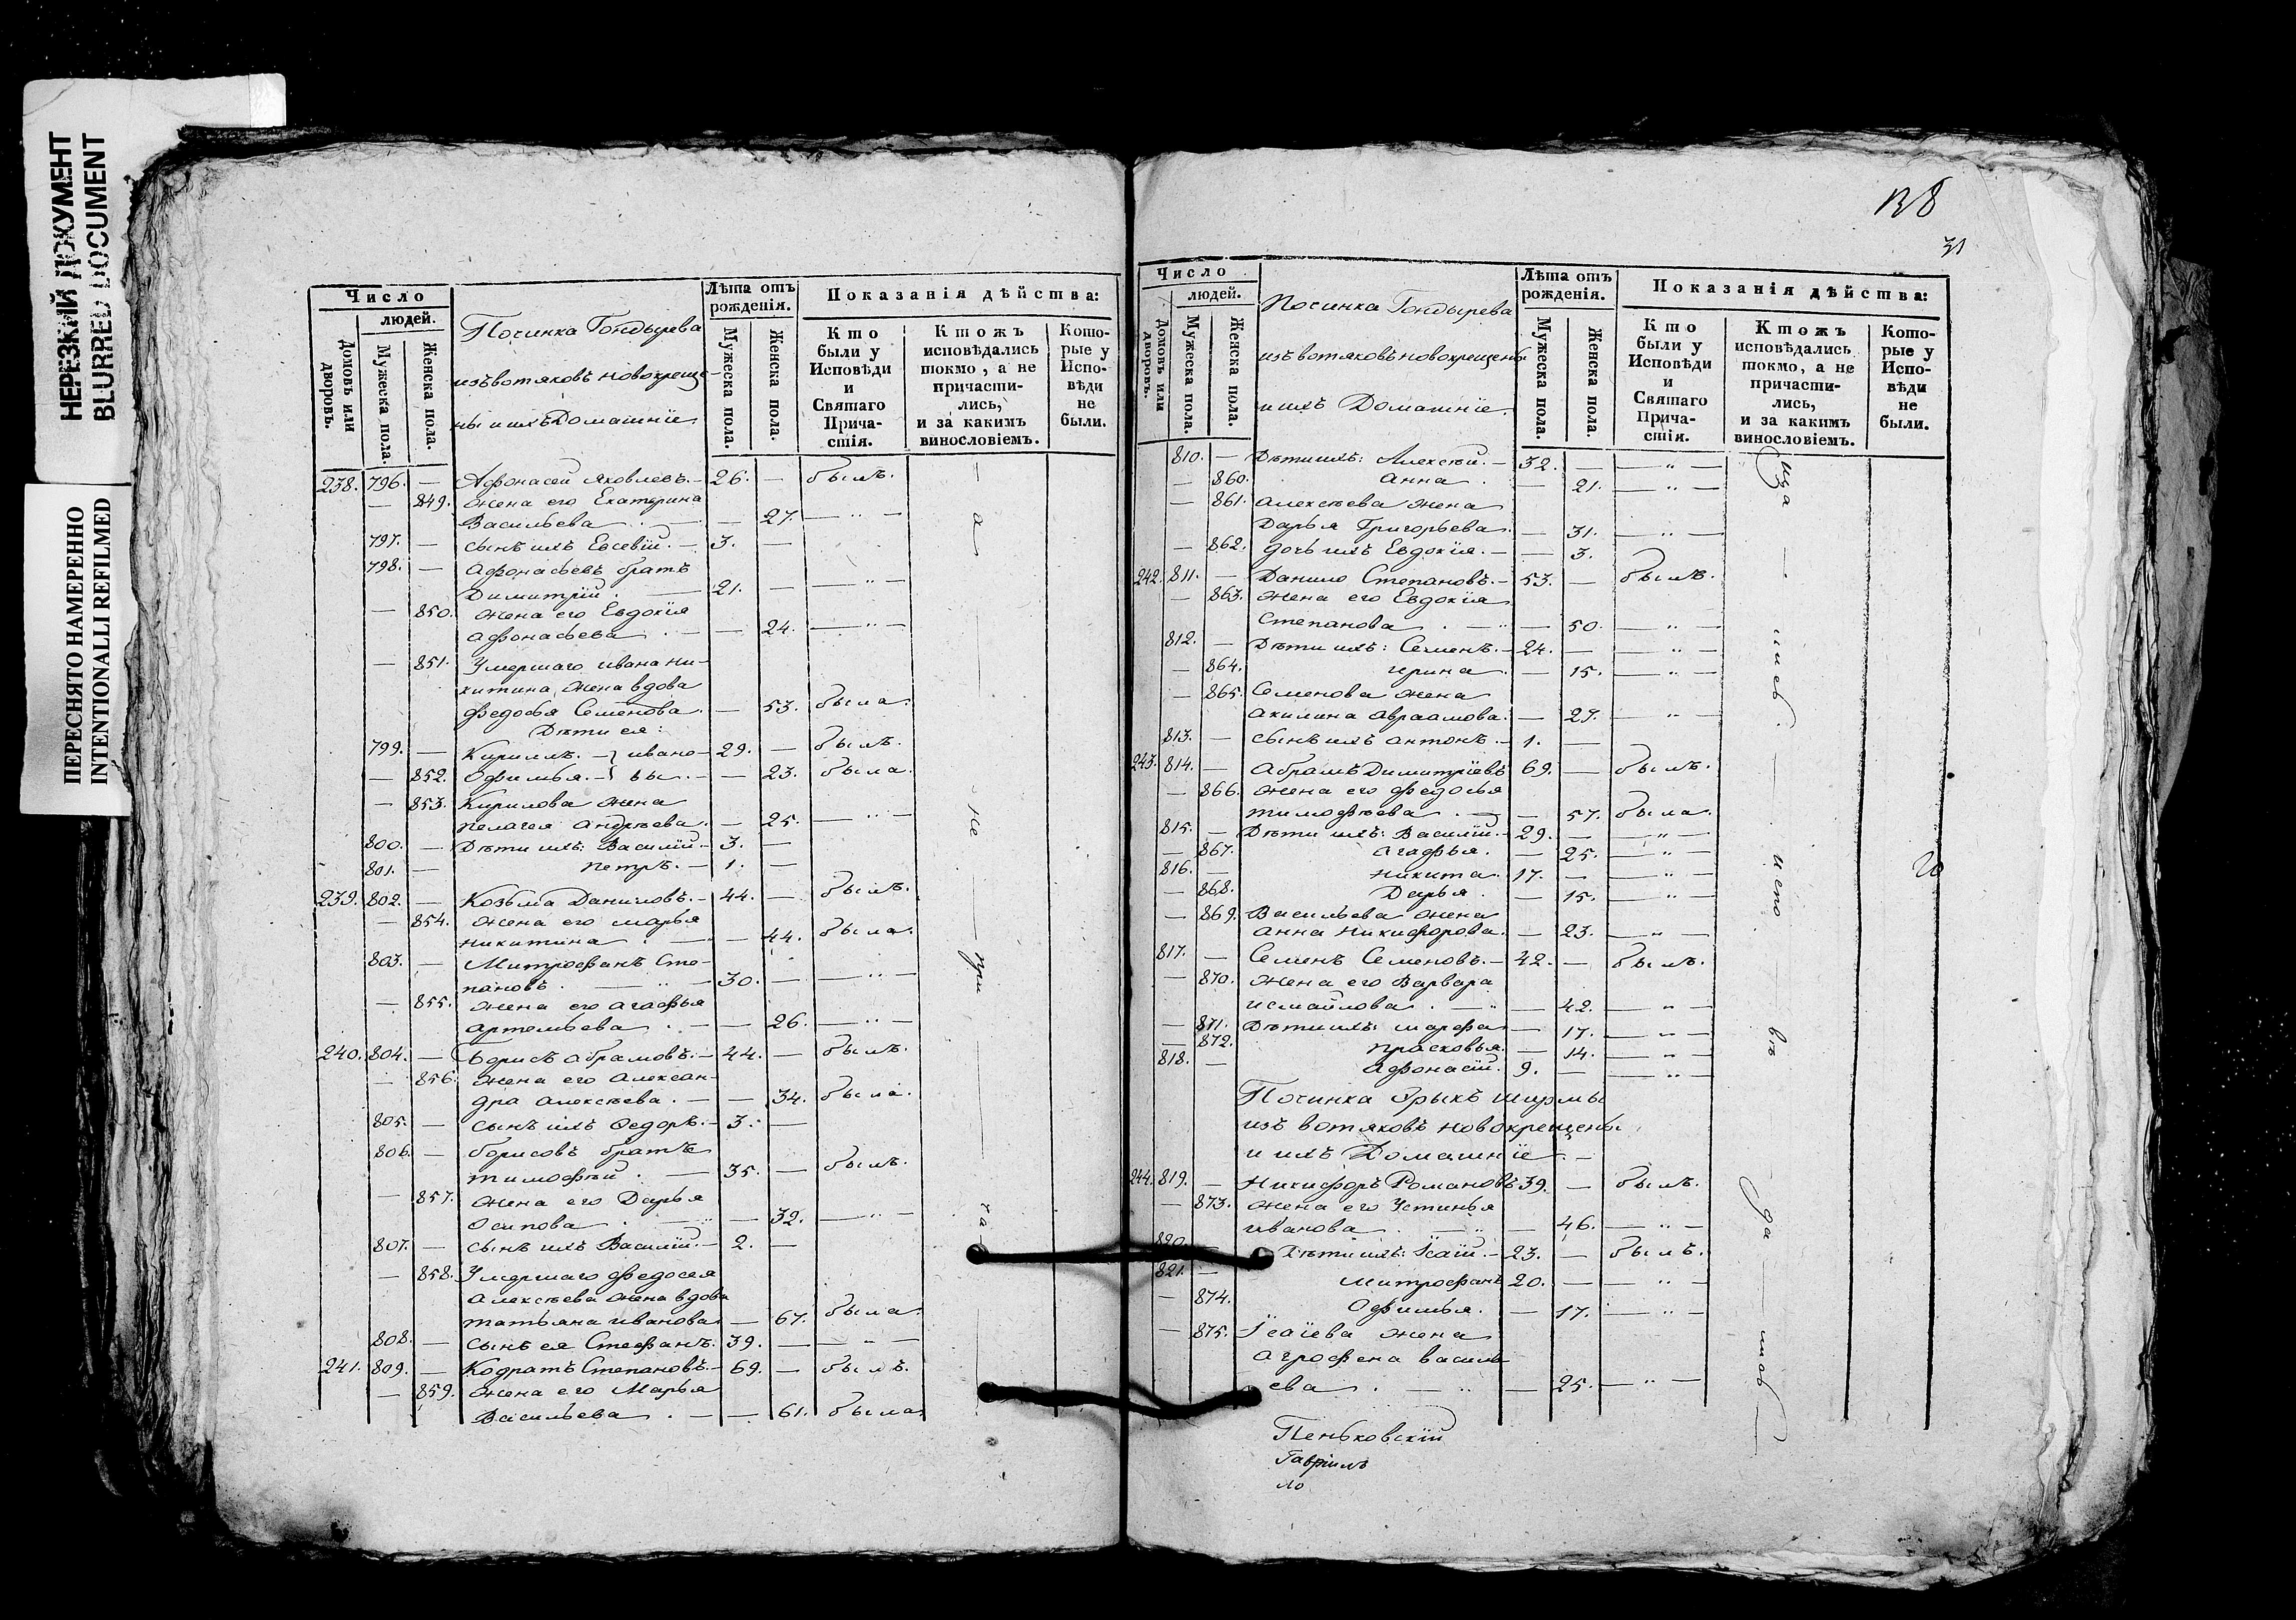 НЕРЕЗКИЙ ДОКУМЕНТ
BLURRED DOCUMENT
ПЕРЕСНЯТО НАМЕРЕННО
INTENTIONALLI REFILMED
Число
людей.
Домовъ или дворовъ.
Мужеска пола.
Женска пола.
Починка Гондырева
изъ вотяковъ новокреще-
ны и ихъ Домашніе
Лѣта отъ рожденія.
Мужеска пола.
Женска пола.
Показанія дѣйства:
Кто были у Исповѣди и Святаго Причастія.
Ктожъ исповѣдались токмо, а не причастились, и за какимъ винословіемъ.
Которые у Исповѣди не были.
238. 796. — Афонасей Яковлевъ. — 26. — былъ.
— 849. Жена его Екатерина
Васильева — 27. — „ —
797. — Сынъ ихъ Евсевій. — 3. —
798. — Афонасьевъ братъ
Димитрій. — 21. — — „ —
— 850. Жена его Евдокія
Афонасьева. — — 24. — „ —
— 851. Умершаго Ивана Ни-
китина жена вдова
Федосья Семенова. — 53. была.
Дѣти ея:
799. — Кириллъ. — } Ивано- 29. — былъ.
— 852. Офимья. — } вы. — — 23. была.
— 853. Кирилова жена
Пелагея Андреева. — 25. — „ —
800. — Дѣти ихъ: Василій. — 3. —
801. — Петръ. — 1. —
239. 802. — Козьма Даниловъ. — 44. — былъ.
— 854. Жена его Марья
Никитина. — — 44. была.
803. — Митрофанъ Сте-
пановъ. — „ — 30. — — „ —
— 855. Жена его Агафья
Артемьева. — — 26. — „ —
240. 804. — Борисъ Абрамовъ. — 44. — былъ.
— 856. Жена его Алексан-
дра Алексѣева. — — 34. была.
805. — Сынъ ихъ Ѳедоръ. — 3. —
806. — Борисовъ братъ
Тимофѣй. — 35. — былъ.
— 857. Жена его Дарья
Осипова. — „ — 32. — „ —
807. — Сынъ ихъ Василій. — 2. —
— 858. Умершаго Федосея
Алексѣева жена вдова
Татьяна Иванова — 67. была.
808. — Сынъ ея Стефанъ. 39. — — „ —
241. 809. — Кодратъ Степановъ. — 69. — былъ.
— 859. Жена его Марья
Васильева. — — 61. была.
а — не — при — ча
138
31
Число
людей.
Домовъ или дворовъ.
Мужеска пола.
Женска пола.
Починка Гондырева
изъ вотяковъ новокрещены
и ихъ Домашніе
Лѣта отъ рожденія.
Мужеска пола.
Женска пола.
Показанія дѣйства:
Кто были у Исповѣди и Святаго Причастія.
Ктожъ исповѣдались токмо, а не причастились, и за какимъ винословіемъ.
Которые у Исповѣди не были.
810. — Дѣти ихъ: Алексѣй. — 32. — — „ —
— 860. Анна. — 21. — „ —
— 861. Алексѣева жена
Дарья Григорьева. — 31. — „ —
— 862. Дочь ихъ Евдокія. — — 3.
242. 811. — Данило Степановъ. — 53. — былъ.
— 863. Жена его Евдокія
Степанова. — „ — 50. — „ —
812. — Дѣти ихъ: Семенъ. — 24. — — „ —
— 864. Ирина — 15. — „ —
— 865. Семенова жена
Акилина Авраамова. — 29. — „ —
813. — Сынъ ихъ Антонъ. — 1. —
243. 814. — Абрамъ Димитріевъ 69. — былъ.
— 866. Жена его Федосья
Тимофѣева. — — 57. была.
815. — Дѣти ихъ: Василій. — 29. — — „ —
— 867. Агафья. — 25. — „ —
816. — Никита. 17. — — „ —
— 868. Дарья. — 15. — „ —
— 869. Васильева жена
Анна Никифорова. — 23. — „ —
817. — Семенъ Семеновъ. — 42. — былъ.
— 870. Жена его Варвара
Исмайлова. — „ — 42. — „ —
— 871. Дѣти ихъ: Марфа — 17. — „ —
— 872. Прасковья. — 14. — „ —
818. — Афонасій. 9. — — „ —
Починка Эрыкъ Ширмы
изъ вотяковъ новокрещены
и ихъ Домашніе. —
244. 819. — Никифоръ Романовъ 39. — былъ.
— 873. Жена его Устинья
Иванова. — „ — 46. — „ —
820. — Дѣти ихъ: Ісаій. — 23. — былъ.
821. — Митрофанъ 20. — — „ —
— 874. Офимья. — 17. — „ —
— 875. Ісаіева жена
Агрофена Василь-
ева. — „ — 25. — „ —
его — въ — да
Пеньковскій
Гавріилъ
ло